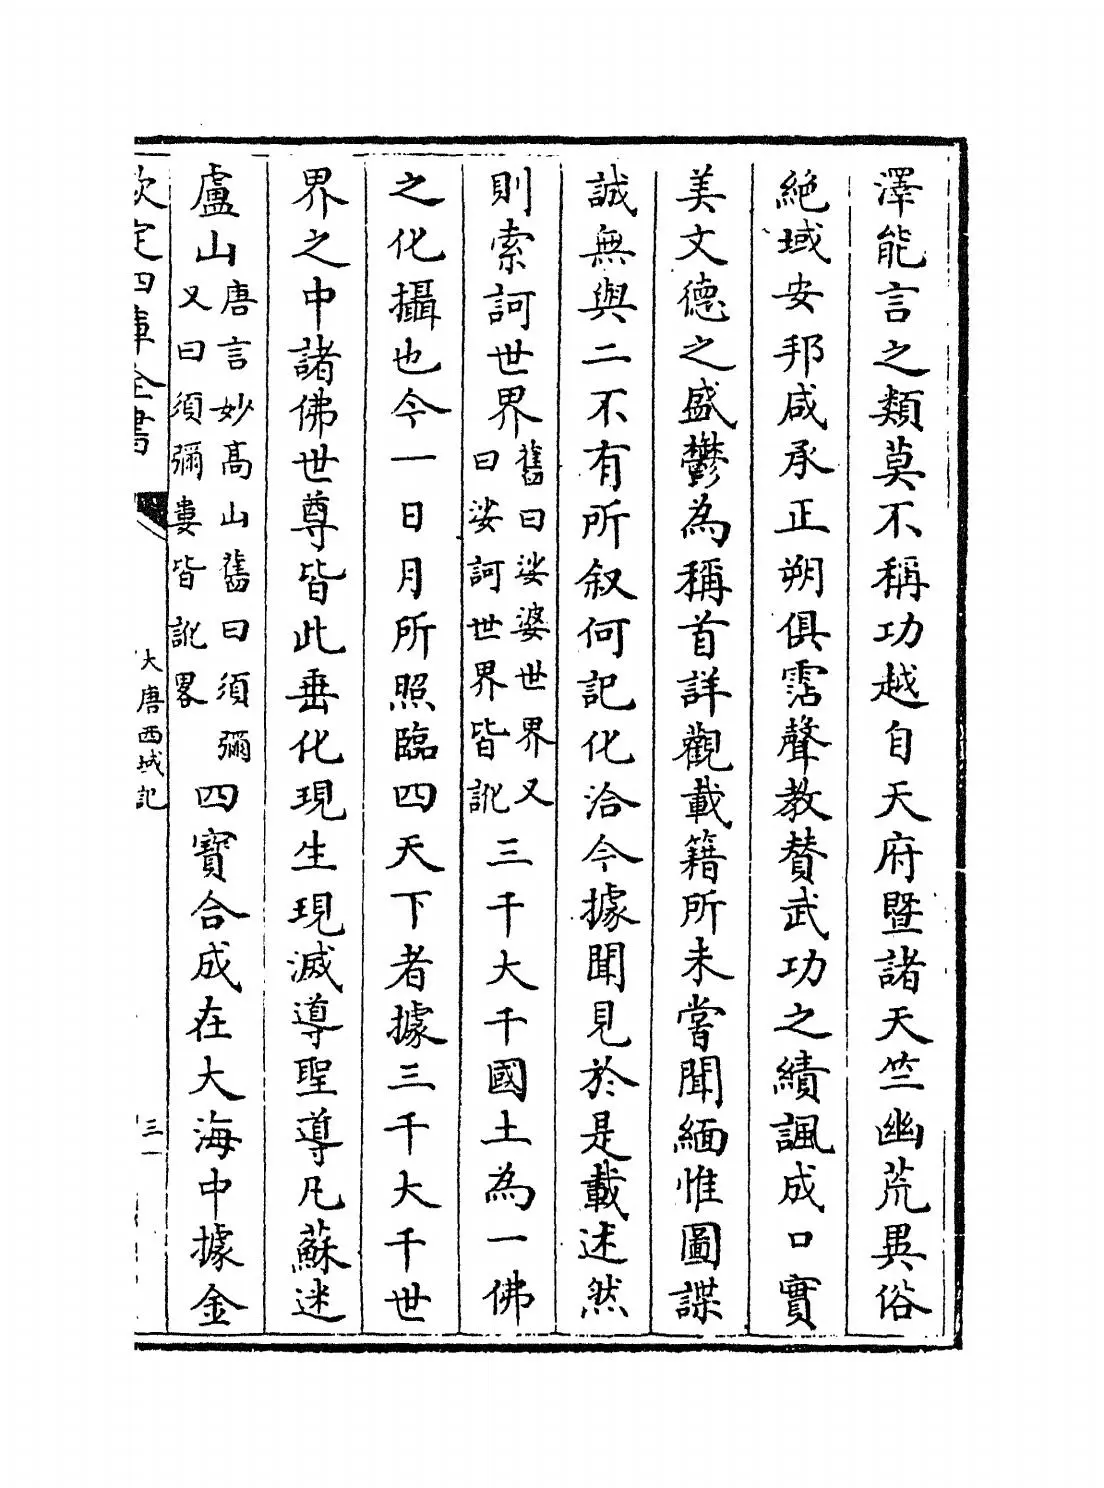 澤能言之類莫不稱功越自天府暨諸天竺幽荒異俗
絕域安邦咸承正朔俱霑聲教賛武功之績諷成口實
美文德之盛鬱為稱首詳觀載籍所未嘗聞緬惟圖諜
誠無與二不有所叙何記化洽今據聞見於是載述然
則索訶世界舊曰娑婆世界又曰娑訶世界皆訛三千大千國土為一佛
之化攝也今一日月所照臨四天下者據三千大千世
界之中諸佛世尊皆此垂化現生現滅導聖導凡蘇迷
盧山唐言妙高山舊曰須彌又曰須彌婁皆訛畧四寶合成在大海中據金
欽定四庫全書
大唐西域記
三